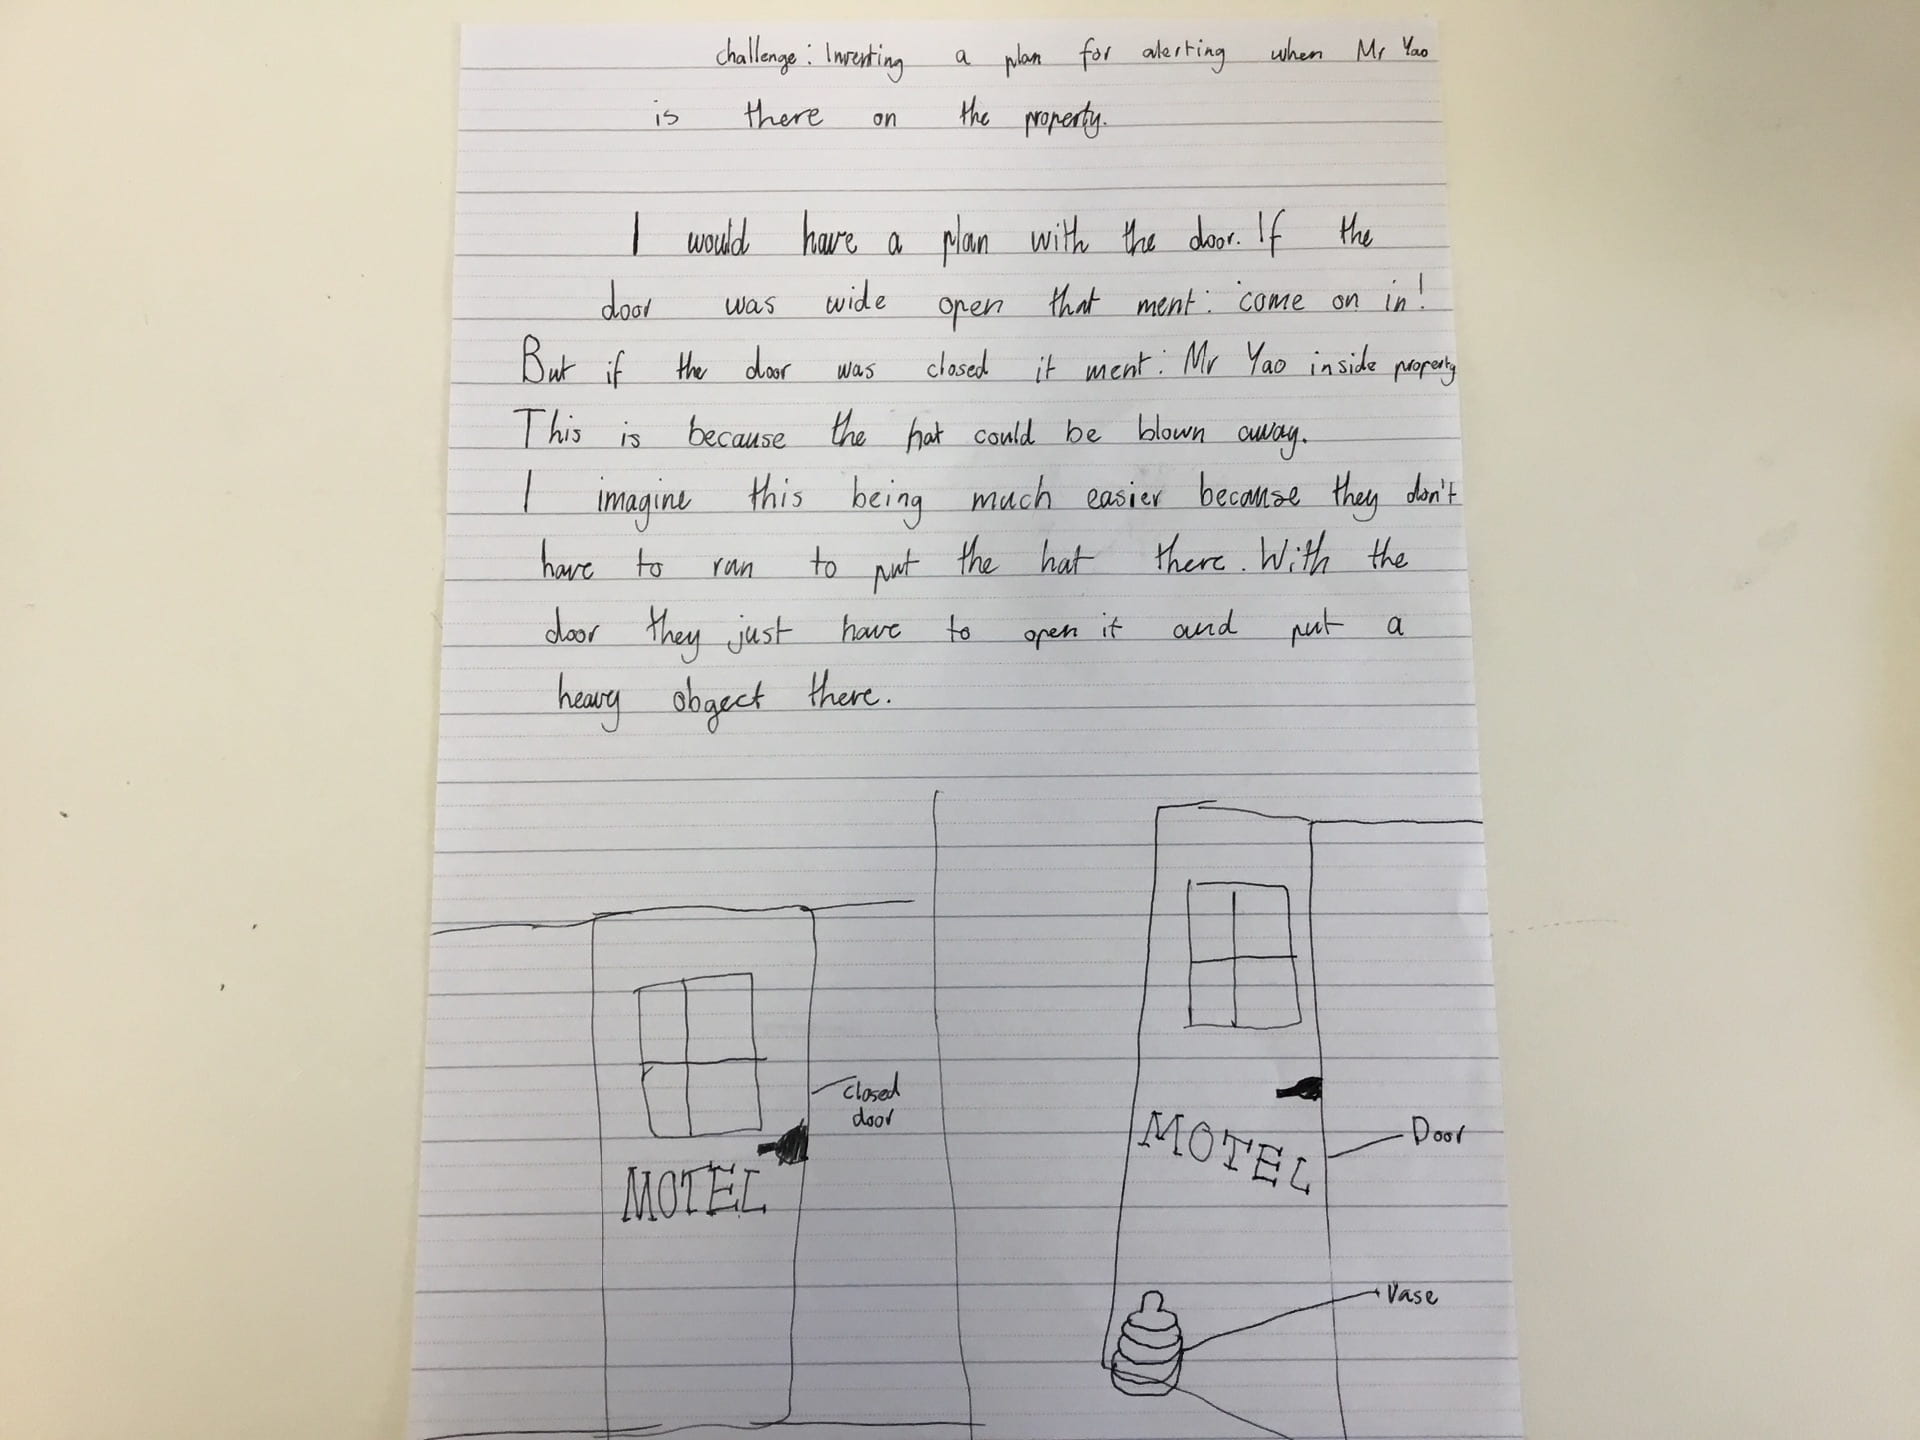 challenge: Inventing a plan for alerting when Mr Yao
is there on the property.
I would have a plan with the door. If the
door was wide open that ment: come on in!
But if the door was closed it ment: Mr Yao inside property
This is because the hat could be blown away.
I imagine this being much easier because they don't
have to run to put the hat there. With the
door they just have to open it and put a
heavy obgect there.
closed
door
MOTEL
MOTEL
Door
Vase